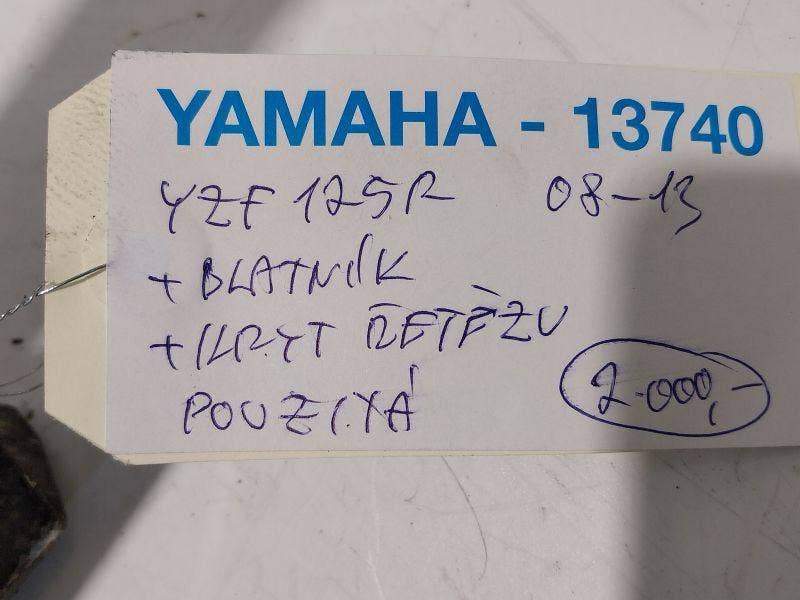 YAMAHA - 13740
YZF 125R 08-13
+ BLATNÍK
+ KRYT ŘETĚZU
POUŽITÁ
2.000,-